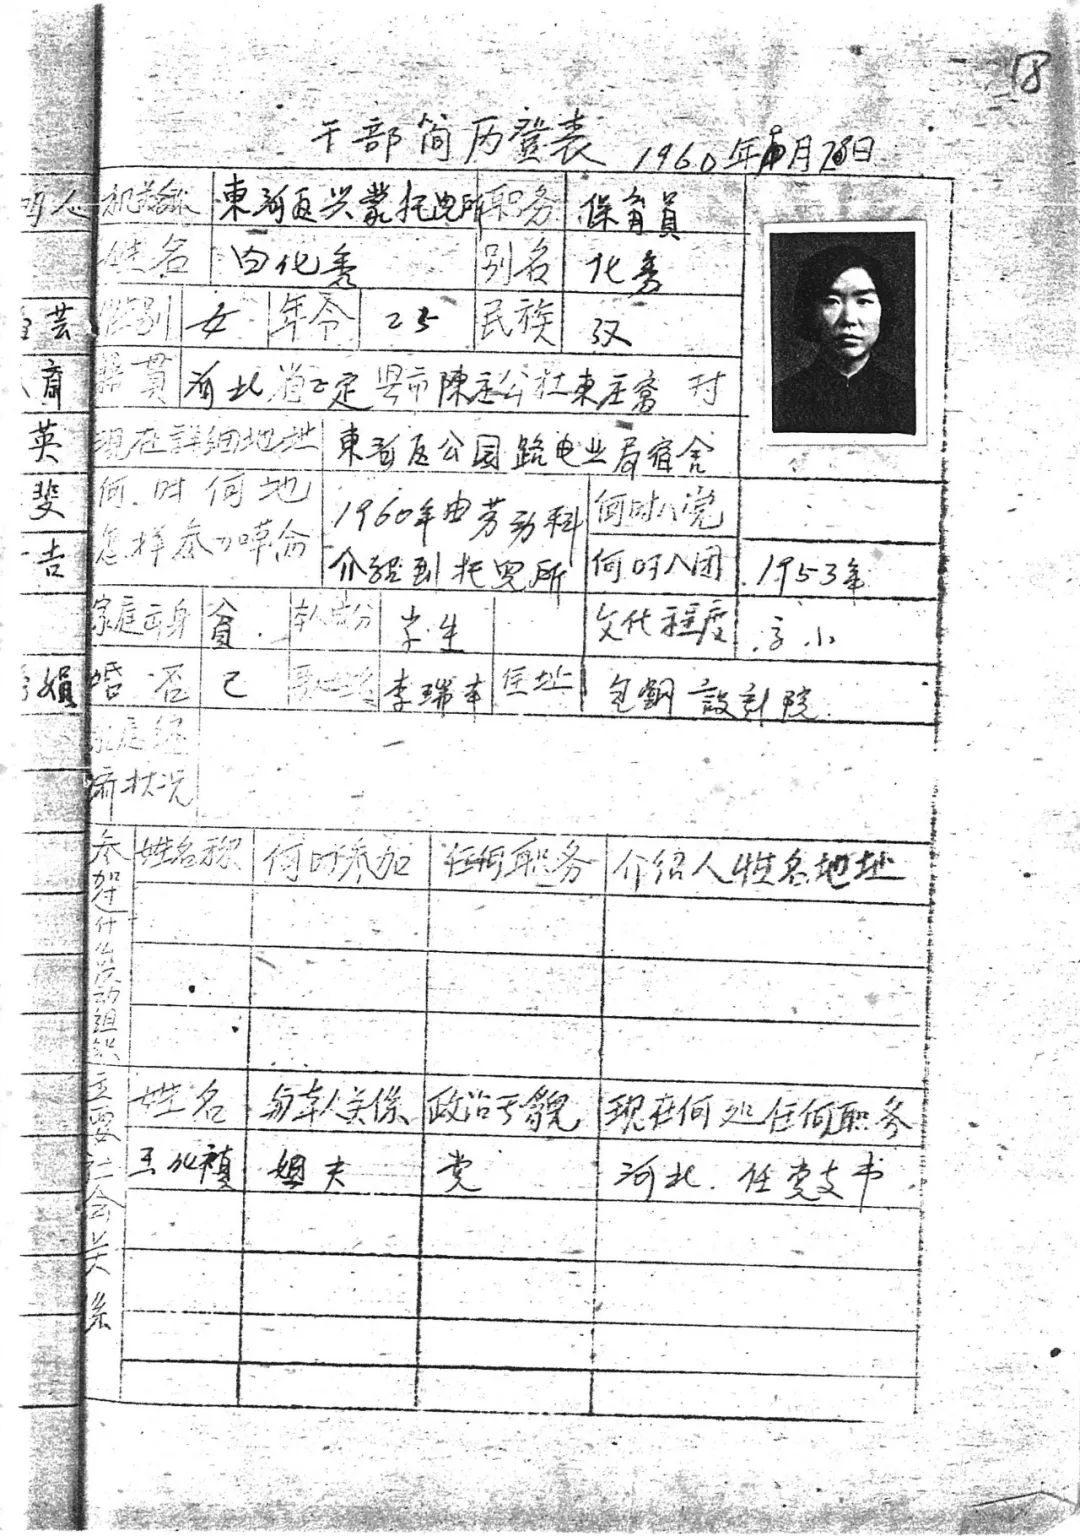 18
干部简历登表 1960年月28日
东河区兴蒙托児所 职务 保育員
姓名 白化秀 别名 化秀
性别 女 年令 25 民族 汉
籍貫 河北 正定 县市陳庄公社東庄窩村
现在詳細地址 東河区公园路电业局宿舍
何时何地怎样参加革命 1960年由劳动科介紹到托児所
何时入党
何时入团 1953年
家庭出身 贫 本人成分 学生 文化程度 高小
婚否 已 李瑞丰 住址 包鋼設計院
家庭经济状况
参加过什么反动组织 姓名称 何时参加 任何职务 介绍人姓名地址
主要社会关系 姓名 与本人关係 政治面貌 现在何处任何职务
王化禎 姐夫 党 河北.任党支书
芸
斋
英
斐
吉
娟